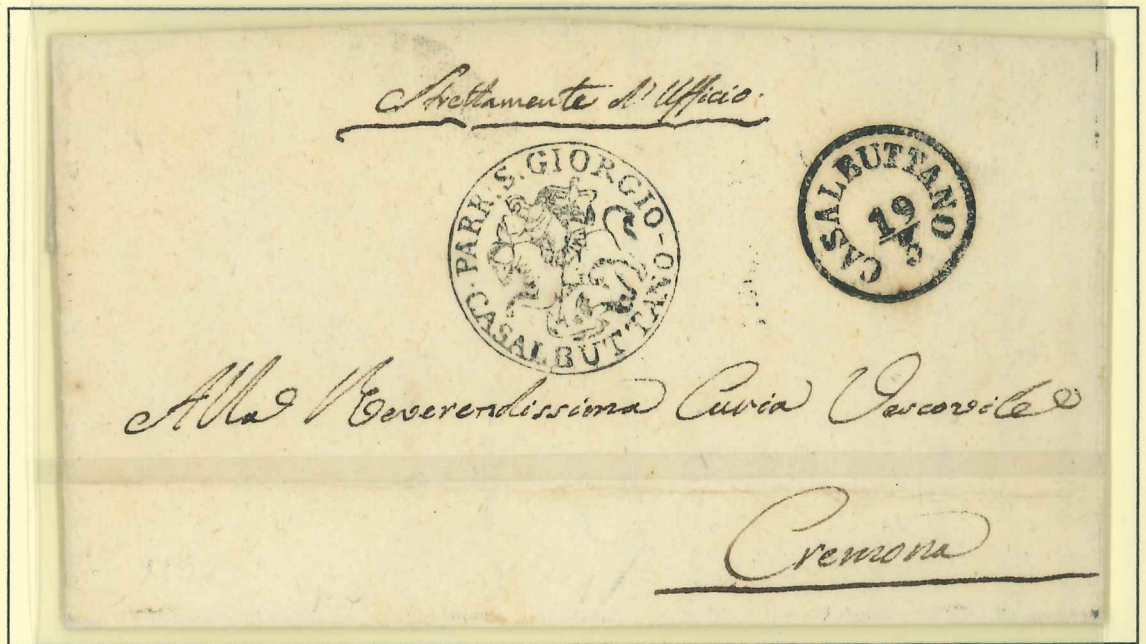 Strettamente d'Ufficio.
PARR: S. GIORGIO - CASALBUTTANO
CASALBUTTANO
19/3
Alla Reverendissima Curia Vescovile
Cremona